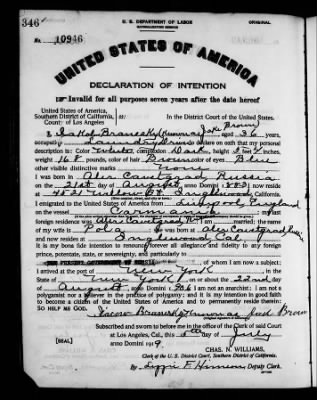 346
U. S. DEPARTMENT OF LABOR
NATURALIZATION SERVICE
ORIGINAL
No. 10946
UNITED STATES OF AMERICA
DECLARATION OF INTENTION
Invalid for all purposes seven years after the date hereof
United States of America,
Southern District of California, ss:
County of Los Angeles
In the District Court of the United States.
I, Jakob aged 36 years,
occupation Laundry Driver do declare on oath that my personal
description is: Color White complexion Dark height 5 feet inches,
weight 168 pounds, color of hair Brown color of eyes Blue
other visible distinctive marks none
I was born in Russia
on the 21st day of August anno Domini I now reside
California.
I emigrated to the United States of America from Liverpool, England
on the vessel Carmania
foreign residence was I am married; the name
of my wife is Pola was born at
and now resides at Inglewood, Cal.
It is my bona fide intention to renounce forever all allegiance and fidelity to any foreign
prince, potentate, state, or sovereignty, and particularly to
of whom I am now a subject:
I arrived at the port of New York in the
State of New York on or about the 22nd day
of August anno Domini 1906 I am not an anarchist: I am not a
polygamist nor a believer in the practice of polygamy; and it is my intention in good faith
to become a citizen of the United States of America and to permanently reside therein:
SO HELP ME GOD.
Brown
Subscribed and sworn to before me in the office of the Clerk of said Court
at Los Angeles, Cal., this day of July
[SEAL] anno Domini 1919.
CHAS. N. WILLIAMS,
Clerk of the U. S. District Court, Southern District of California.
By Deputy Clerk.